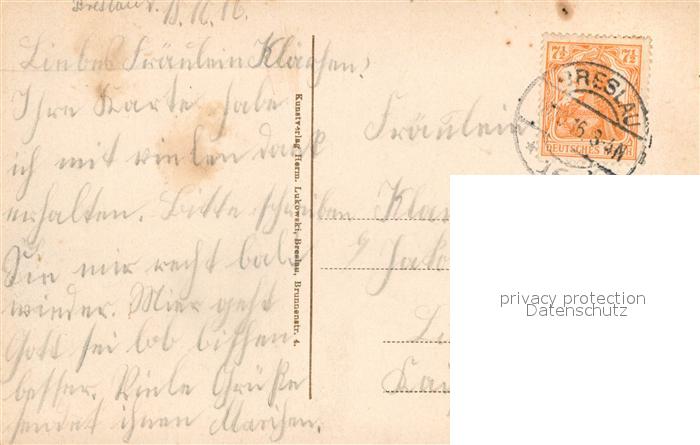 Breslau d. 11.11.16.
Liebes Fräulein Klärchen!
Ihre Karte habe
ich mit vielen dank
erhalten. Bitte schreiben
Sie mir recht bald
wieder. Mier geht
Gott sei lob bischen
besser. Viele Grüße
sendet ihnen Mariechen.
Kunstverlag Herm. Lukowski, Breslau, Brunnenstr. 4.
7½ 7½
DEUTSCHES REICH
BRESLAU
Fräulein
privacy protection
Datenschutz